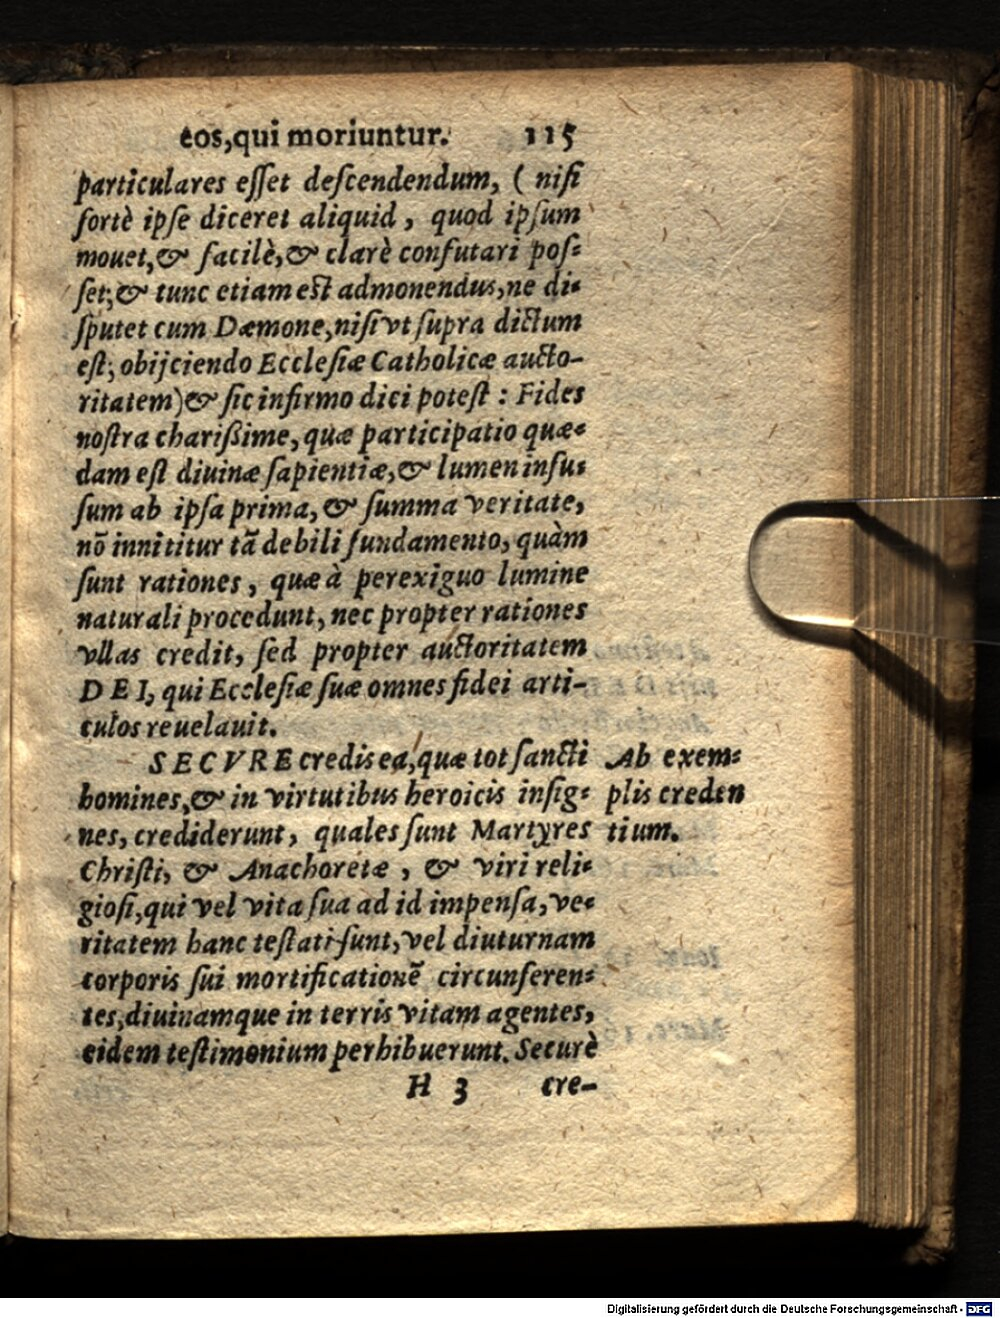 eos,qui moriuntur. 115
particulares eſſet deſcendendum, ( niſi
fortè ipſe diceret aliquid, quod ipſum
mouet,& facilè,& clarè confutari poſ-
ſet;& tunc etiam eſt admonendus,ne di-
ſputet cum Dæmone,niſi vt ſupra dictum
eſt; obijciendo Eccleſiæ Catholicæ aucto-
ritatem)& ſic infirmo dici poteſt : Fides
noſtra charißime, quæ participatio quæ-
dam eſt diuinæ ſapientiæ,& lumen infu-
ſum ab ipſa prima, & ſumma veritate,
nõ innititur tã debili fundamento, quàm
ſunt rationes, quæ à perexiguo lumine
naturali procedunt, nec propter rationes
vllas credit, ſed propter auctoritatem
DEI, qui Eccleſiæ ſuæ omnes fidei arti-
culos reuelauit.
SECVRE credis ea,quæ tot ſancti
homines,& in virtutibus heroicis inſig-
nes, crediderunt, quales ſunt Martyres
Chriſti, & Anachoretæ, & viri reli-
gioſi,qui vel vita ſua ad id impenſa, ve-
ritatem hanc teſtati ſunt, vel diuturnam
corporis ſui mortificationē circunferen-
tes,diuinamque in terris vitam agentes,
eidem teſtimonium perhibuerunt. Securè
H 3 cre-
Ab exem-
plis creden
tium.
Digitalisierung gefördert durch die Deutsche Forschungsgemeinschaft - DFG